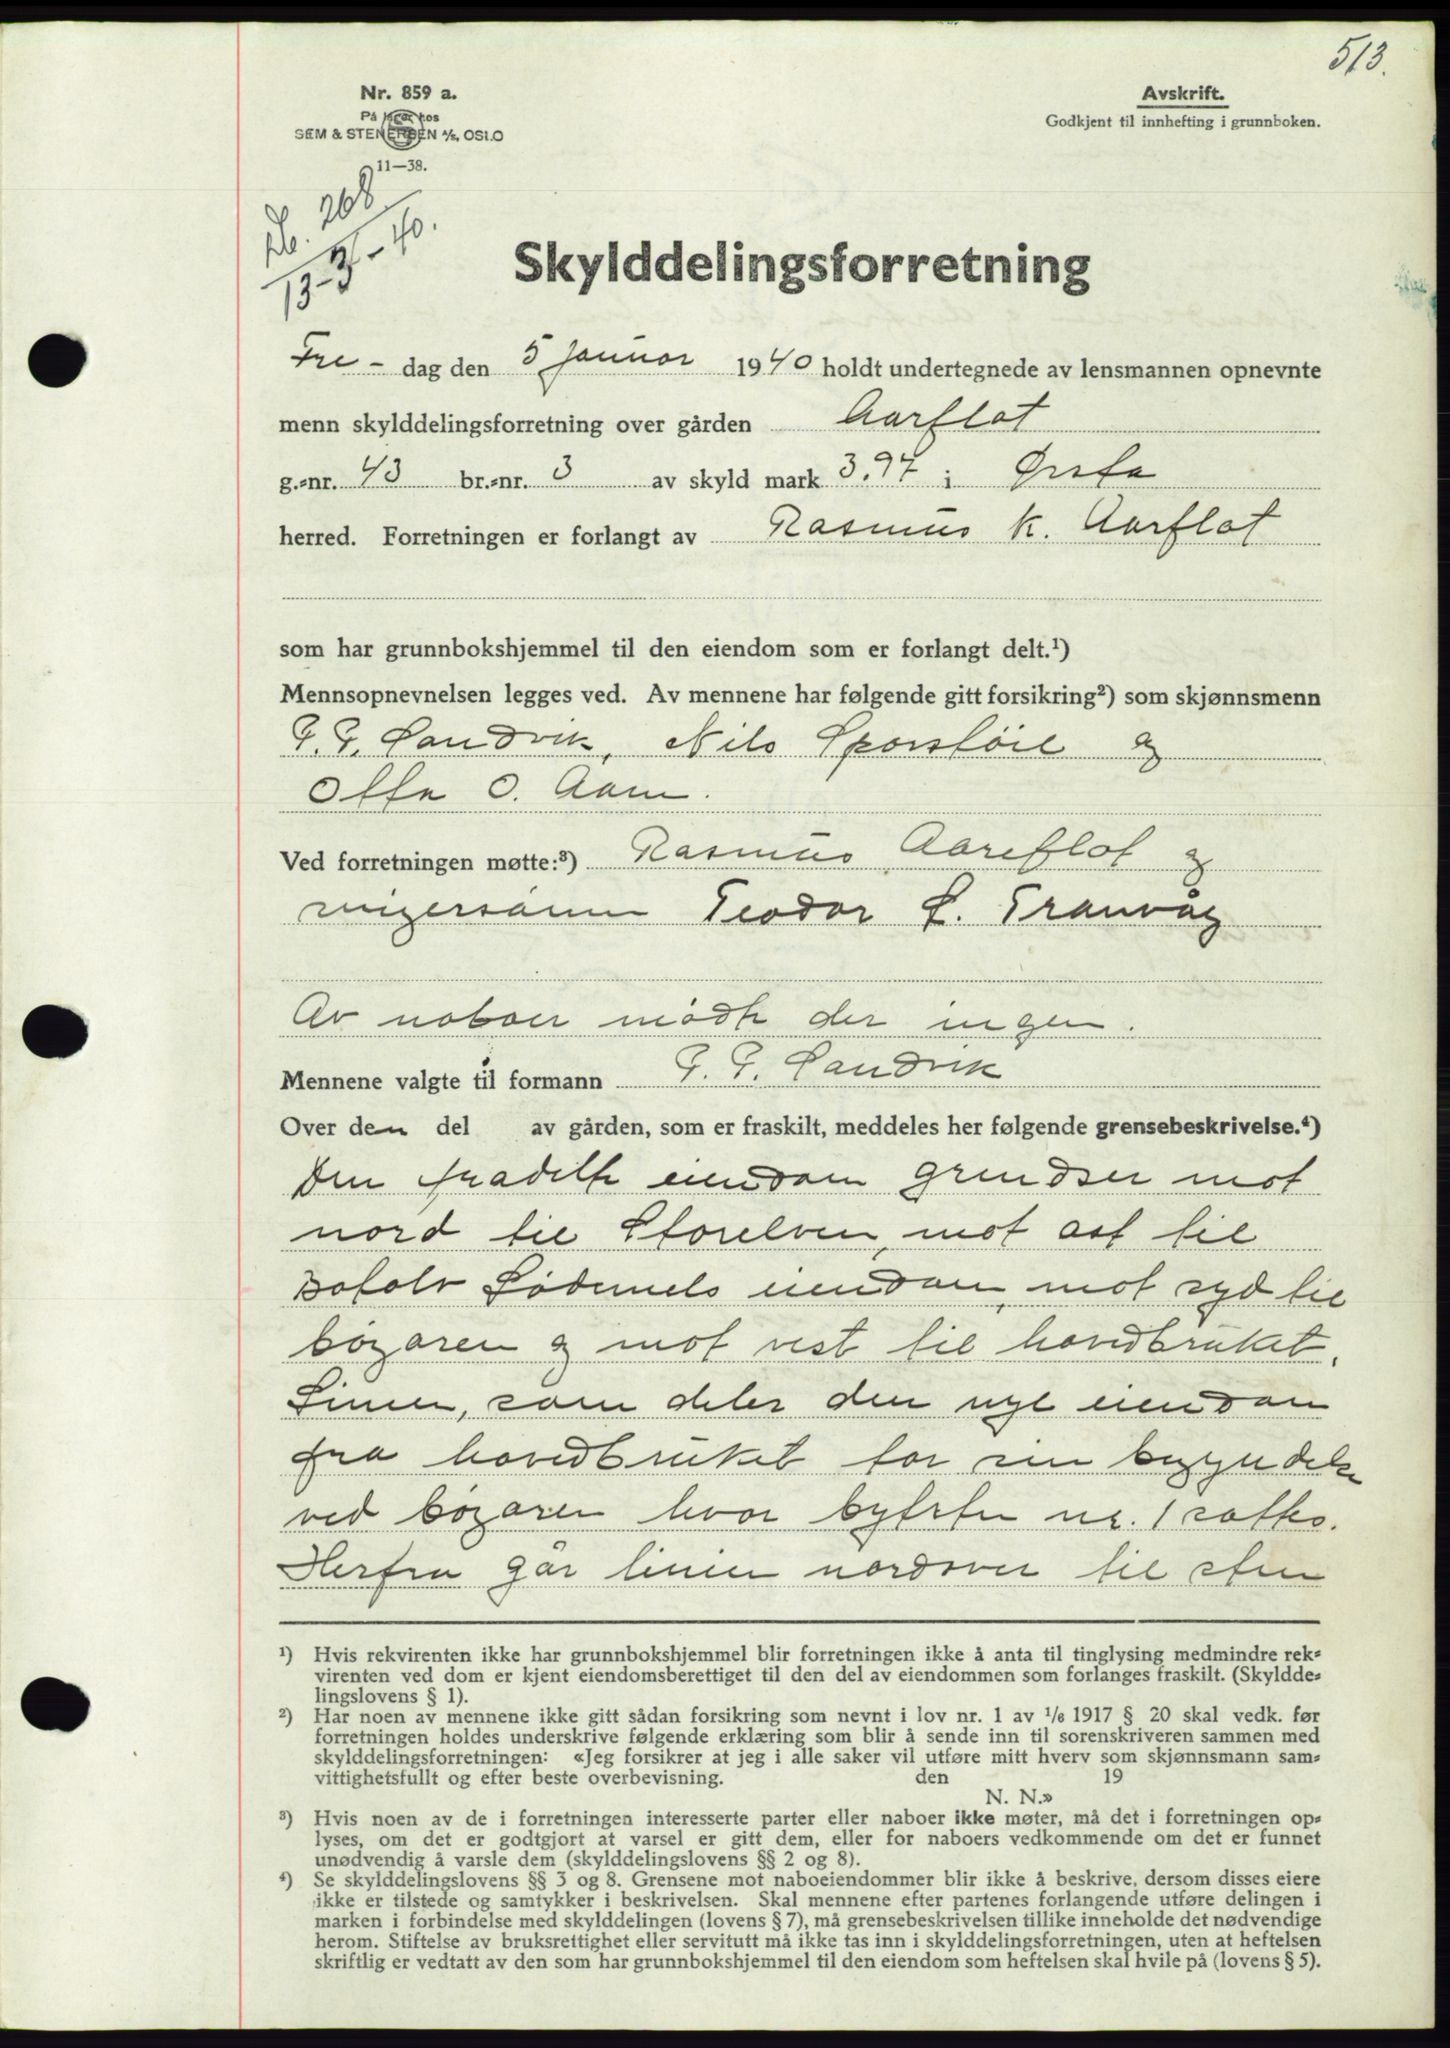 513.
Nr. 859 a.
På lager hos
SEM & STENERSEN A/S, OSLO
11—38.
Avskrift.
Godkjent til innhefting i grunnboken.
268
13-3-40.
Skylddelingsforretning
Fre- dag den 5 januar 1940 holdt undertegnede av lensmannen opnevnte
menn skylddelingsforretning over gården Aarflot
g.-nr. 43 br.-nr. 3 av skyld mark 3.97 i Ørsta
herred. Forretningen er forlangt av Rasmus K. Aarflot
som har grunnbokshjemmel til den eiendom som er forlangt delt.¹)
Mennsopnevnelsen legges ved. Av mennene har følgende gitt forsikring²) som skjønnsmenn
P. P. Sandvik, Nils Sporstöil og
O. Aam.
Ved forretningen møtte:³) Rasmus Aareflot og
Teodor L. Tranvåg
Av naboer mödte der ingen.
Mennene valgte til formann P. P. Sandvik
Over den del av gården, som er fraskilt, meddeles her følgende grensebeskrivelse.⁴)
Den fradelte eiendom grendser mot
nord til Storelven, mot ost til
eiendom, mot syd til
bögaren og mot vest til hovedbruket.
Linien, som deler den nye eiendom
fra hovedbruket tar sin begyndelse
ved bögaren hvor bytesten nr. 1 sattes.
Herfra går linien nordover til sten
¹) Hvis rekvirenten ikke har grunnbokshjemmel blir forretningen ikke å anta til tinglysing medmindre rek-
virenten ved dom er kjent eiendomsberettiget til den del av eiendommen som forlanges fraskilt. (Skyldde-
lingslovens § 1).
²) Har noen av mennene ikke gitt sådan forsikring som nevnt i lov nr. 1 av 1/6 1917 § 20 skal vedk. før
forretningen holdes underskrive følgende erklæring som blir å sende inn til sorenskriveren sammen med
skylddelingsforretningen: «Jeg forsikrer at jeg i alle saker vil utføre mitt hverv som skjønnsmann sam-
vittighetsfullt og efter beste overbevisning. den 19
N. N.»
³) Hvis noen av de i forretningen interesserte parter eller naboer ikke møter, må det i forretningen op-
lyses, om det er godtgjort at varsel er gitt dem, eller for naboers vedkommende om det er funnet
unødvendig å varsle dem (skylddelingslovens §§ 2 og 8).
⁴) Se skylddelingslovens §§ 3 og 8. Grensene mot naboeiendommer blir ikke å beskrive, dersom disses eiere
ikke er tilstede og samtykker i beskrivelsen. Skal mennene efter partenes forlangende utføre delingen i
marken i forbindelse med skylddelingen (lovens § 7), må grensebeskrivelsen tillike inneholde det nødvendige
herom. Stiftelse av bruksrettighet eller servitutt må ikke tas inn i skylddelingsforretningen, uten at heftelsen
skriftlig er vedtatt av den som har grunnbokshjemmel til den eiendom som heftelsen skal hvile på (lovens § 5).